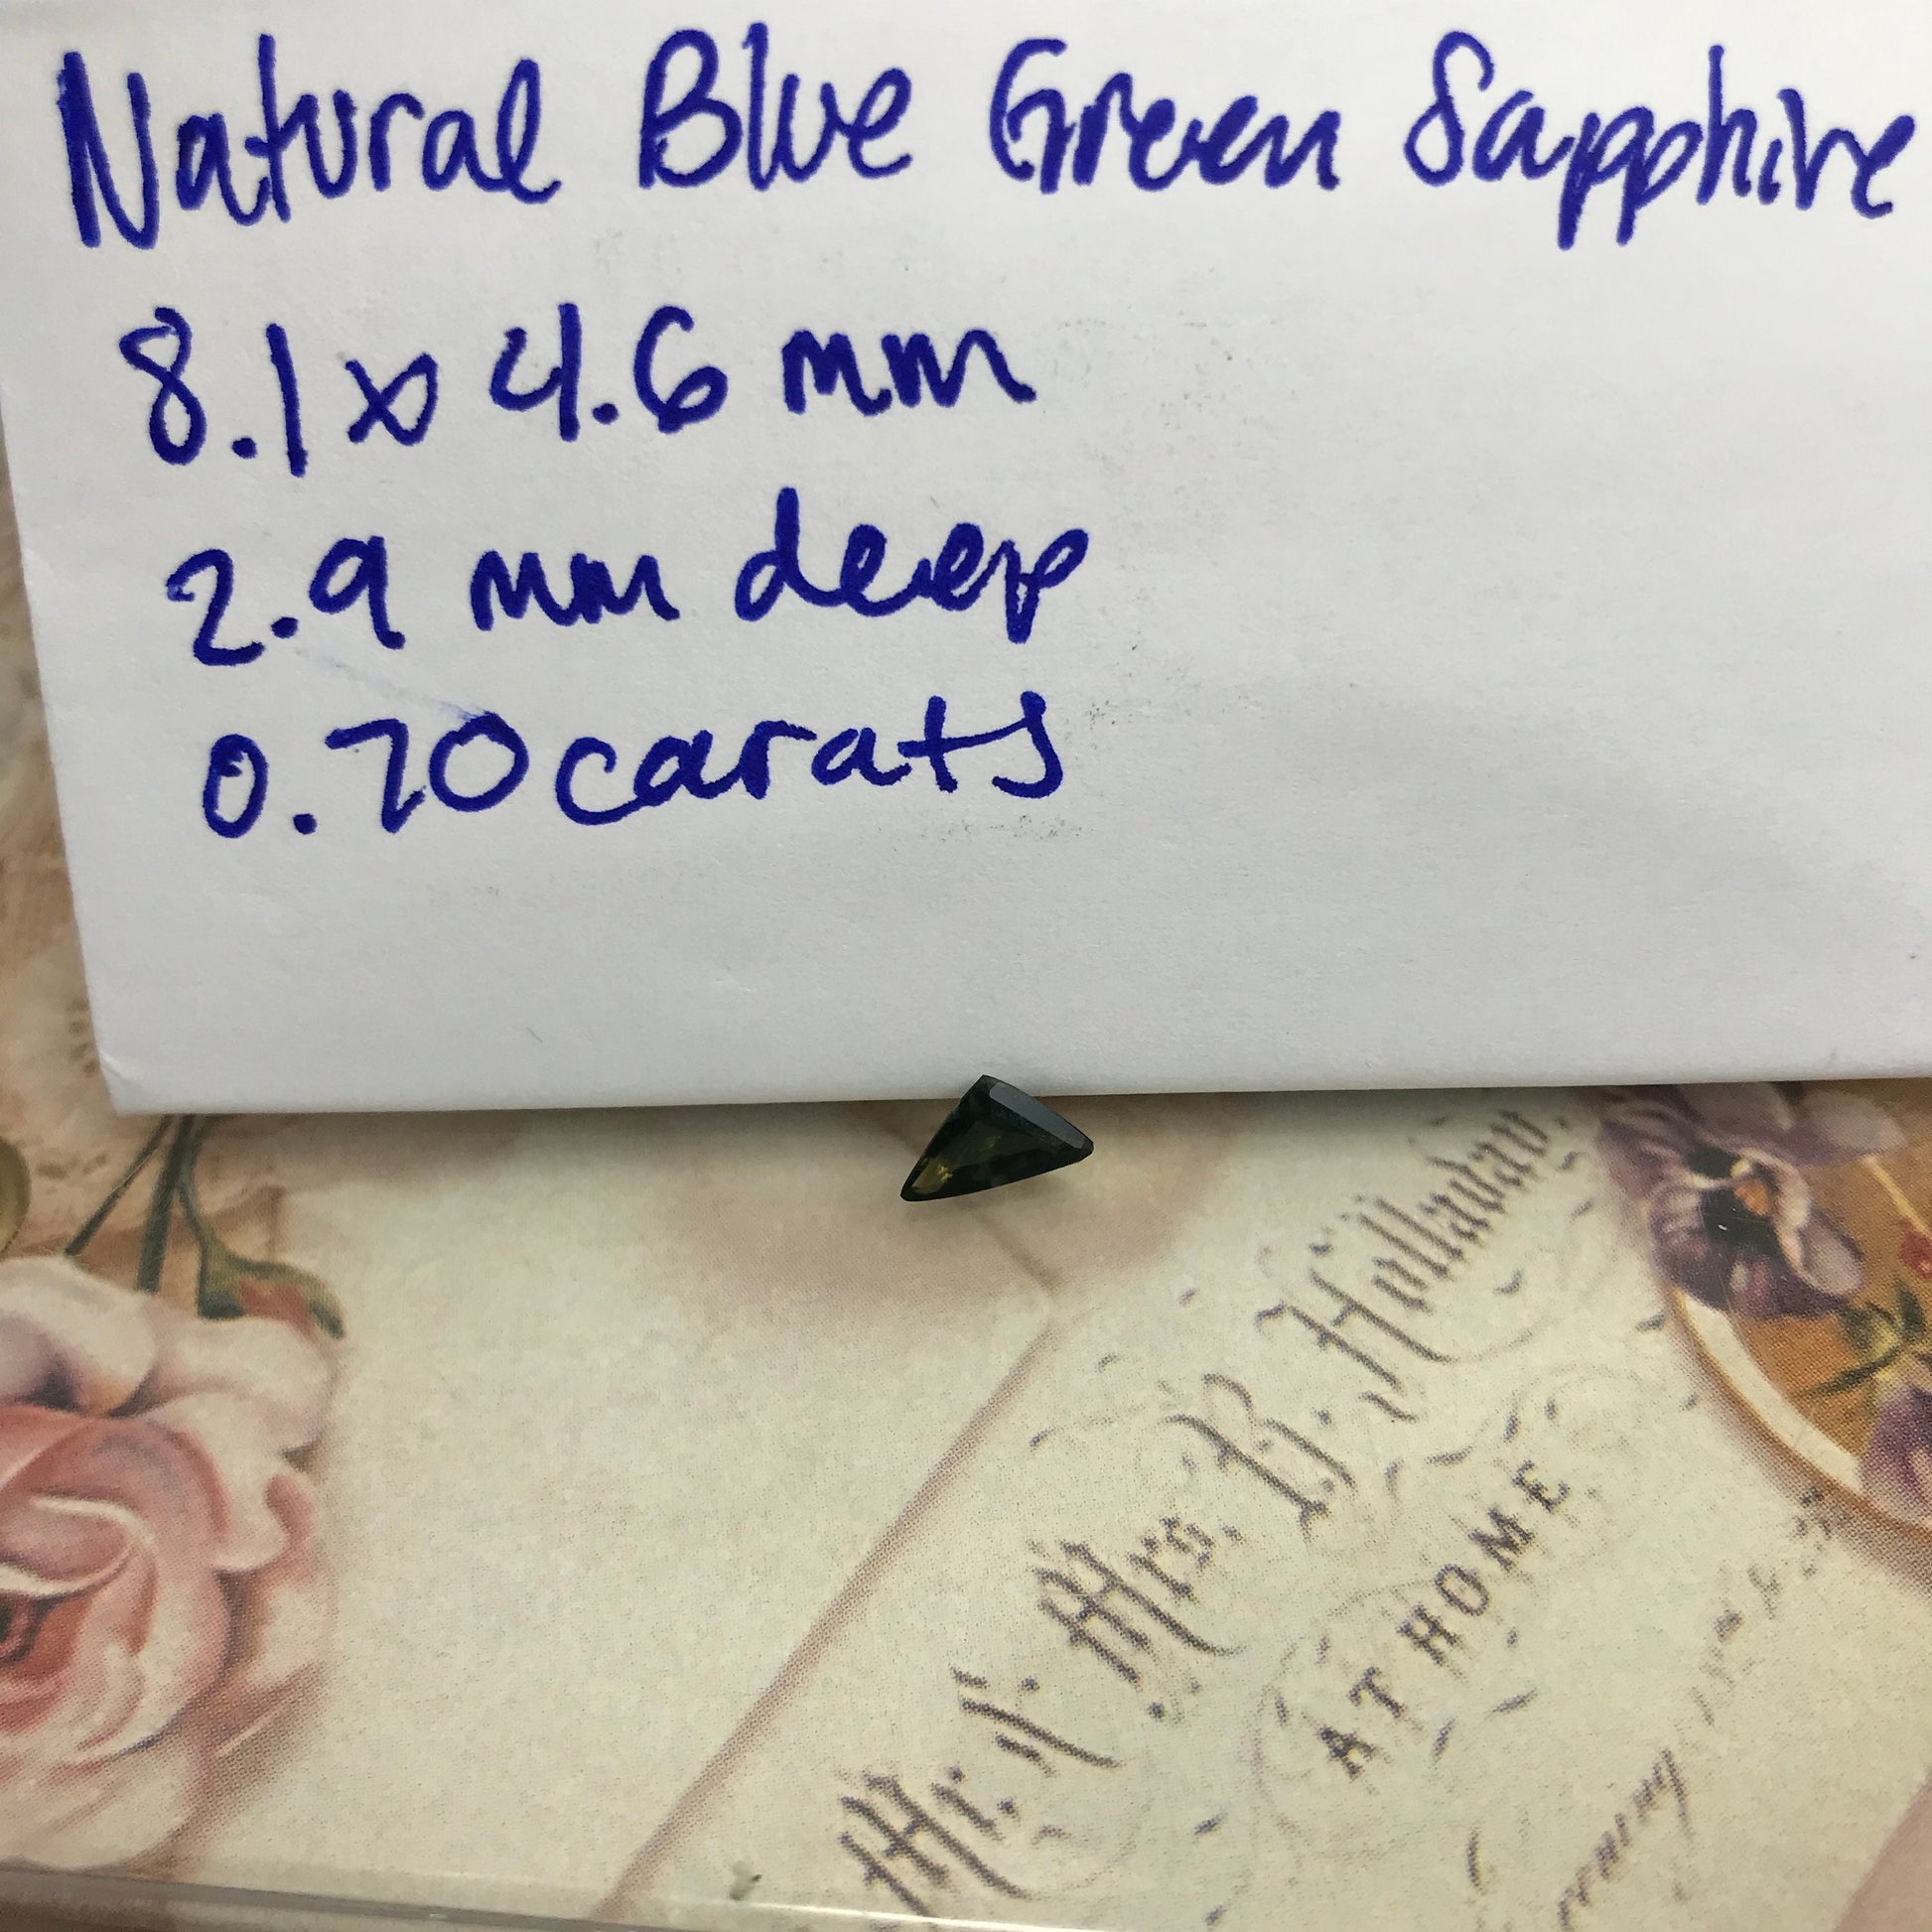 Natural Blue Green Sapphire
8.1 x 4.6 mm
2.9 mm deep
0.70 carats
Mr. & Mrs. B. Hollaway.
AT HOME